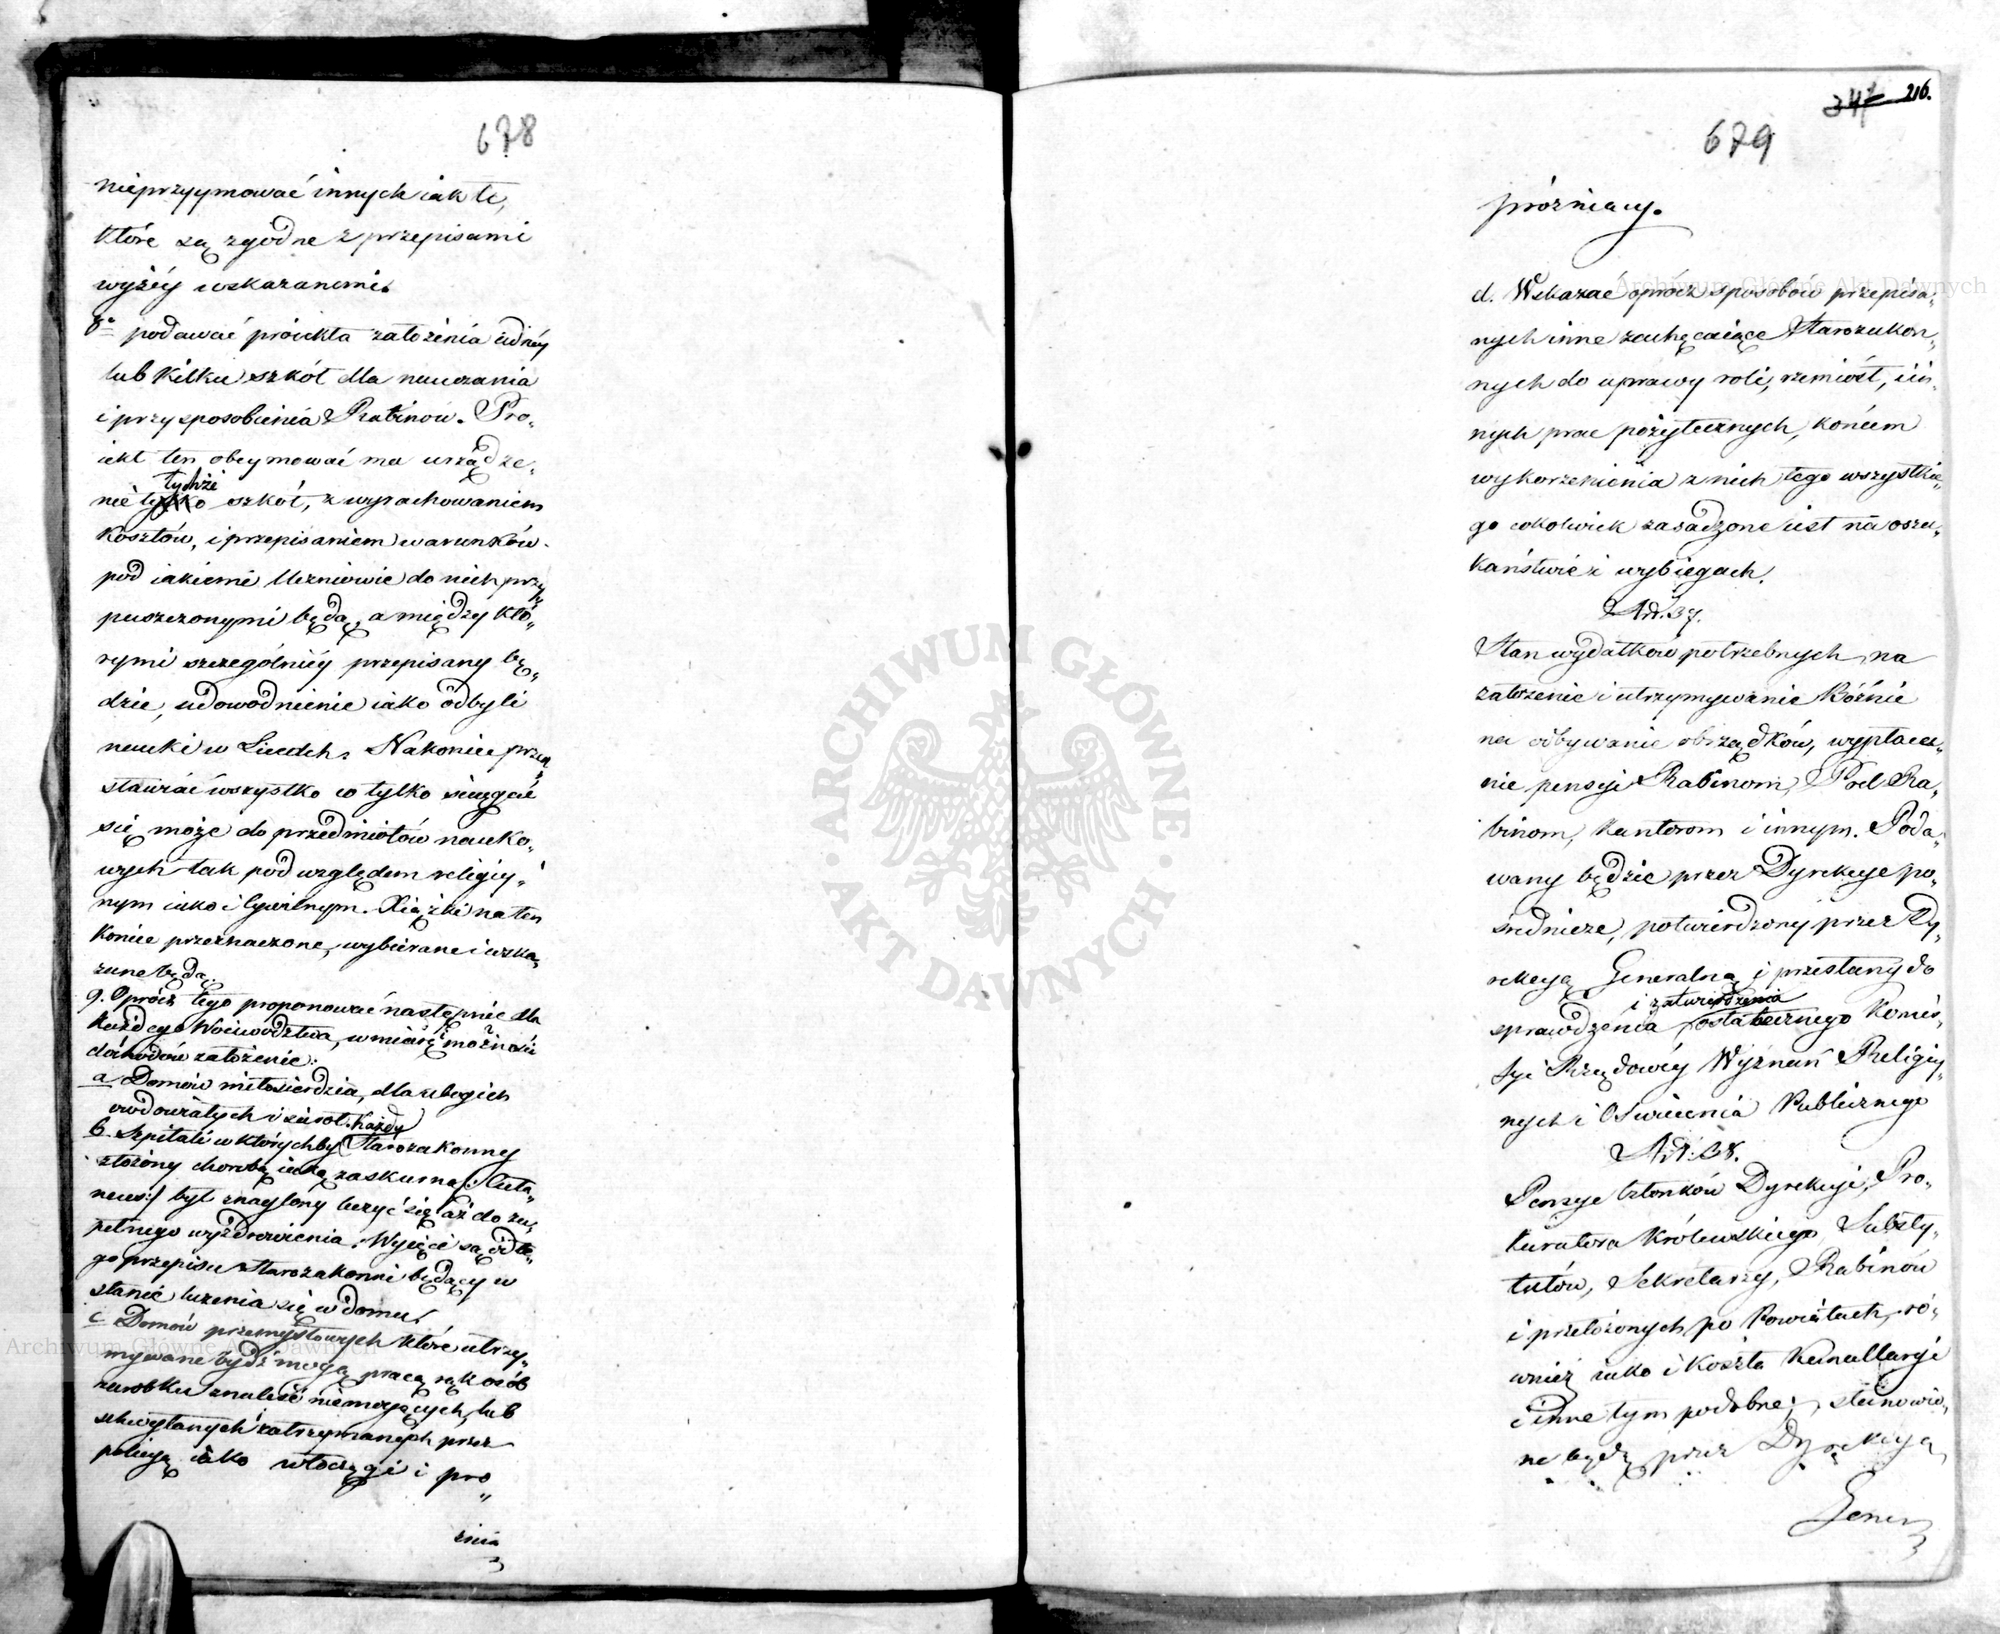 678
nieprzyymować innych iak te,
które są zgodne z przepisami
wyżéy wskazanemi.
8º podawać proiekta założenia iednéy
lub kilku szkół dla nauczania
i przysposobienia Rabinów. Pro„
iekt ten obeymować ma urządze„
nie tychże szkół, z wyrachowaniem
kosztów, i przepisaniem warunków
pod iakiemi Uczniowie do nich przy„
puszczonymi będą, a między któ„
rymi szczególniéy przepisany bę„
dzie, udowodnienie iako odbyli
nauki w Liceach. Nakoniec przed„
stawiać wszystko co tylko ściągać
się może do przedmiotów nauko„
wych tak pod względem religiy„
nym iako i Cywilnym. Xiążki na ten
koniec przeznaczone, wybierane i wska„
zane będą.
9. Oprócz tego proponować następnie dla
każdego Woiewództwa, w miarę możności
dochodów założenie:
a Domów miłosierdzia, dla ubogich
owdowiałych i sierot.
b. Szpitali w których by każdy Starozakonny
złożony chorobą iaką zaskurną /: Cuta„
neus:/ był znaglony leczyć się aż do zu„
pełnego wyzdrowienia. Wyięci są od te„
go przepisu Starozakonni będący w
stanie leczenia się w domu.
c Domów przemysłowych które utrzy„
mywane bydź mogą pracą rąk osób
zarobku znaleść niemogących, lub
schwytanych i zatrzymanych przez
policyą iako włóczęgi i pró„
żnia
347 216.
679
próżniacy.
d. Wskazać oprócz sposobów przepisa„
nych inne zachęcaiące Starozakon„
nych do uprawy roli, rzemiosł, i in„
nych prac pożytecznych, końcem
wykorzenienia z nich tego wszystkie„
go cokolwiek zasadzone iest na oszu„
kaństwie i wybiegach.
Art. 37.
Stan wydatków potrzebnych na
założenie i utrzymywanie Bóźnic
na odbywanie obrządków, wypłace„
nie pensyi Rabinom, Pod Ra„
binom, Kantorom i innym. Poda„
wany będzie przez Dyrekcye po„
średnicze, potwierdzony przez Dy„
rekcyą Generalną i przesłany do
sprawdzenia i zatwierdzenia ostatecznego Kommis„
syi Rządowéy Wyznań Religiy„
nych i Oświecenia Publicznego
Art. 38.
Pensye Członków Dyrekcyi, Pro„
kuratora Królewskiego, Substy„
tutów, Sekretarzy, Rabinów
i przełożonych po Powiatach, ró„
wnież iako i koszta Kancellaryi
i inne tym podobne; stanowio„
ne będą przez Dyrekcyą
Gener
Archiwum Główne Akt Dawnych
Archiwum Główne Akt Dawnych
ARCHIWUM GŁÓWNE
AKT DAWNYCH